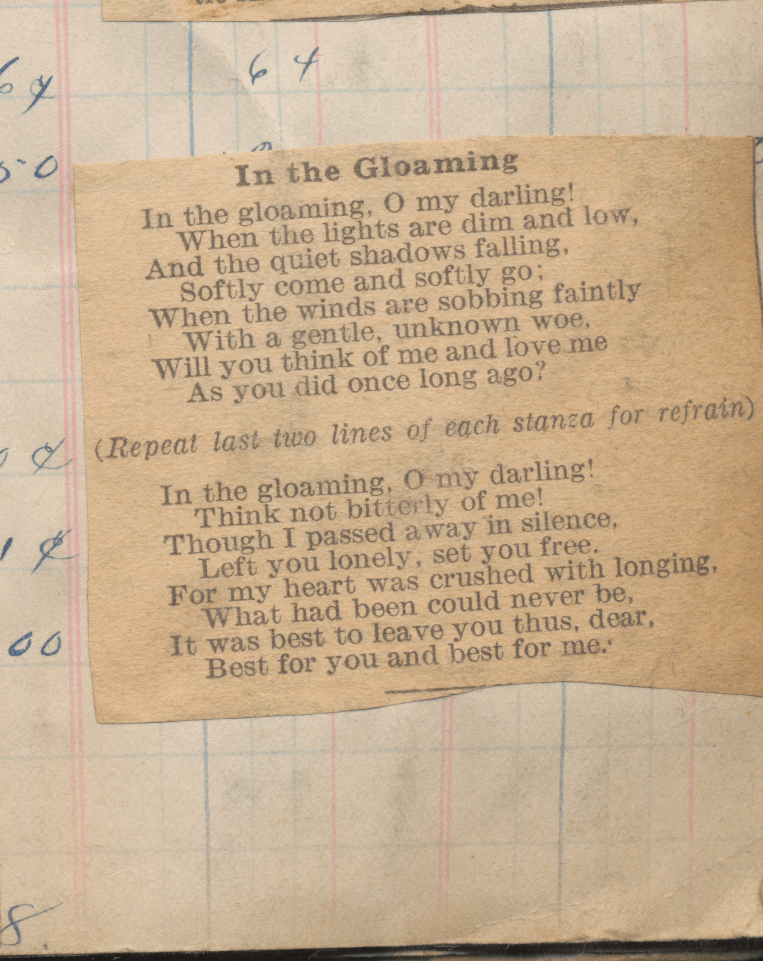 6¢ 64
50
In the Gloaming
In the gloaming, O my darling!
When the lights are dim and low,
And the quiet shadows falling,
Softly come and softly go;
When the winds are sobbing faintly
With a gentle, unknown woe,
Will you think of me and love me
As you did once long ago?
(Repeat last two lines of each stanza for refrain)
In the gloaming, O my darling!
Think not bitterly of me!
Though I passed away in silence,
Left you lonely, set you free.
For my heart was crushed with longing,
What had been could never be,
It was best to leave you thus, dear,
Best for you and best for me.
00
8.